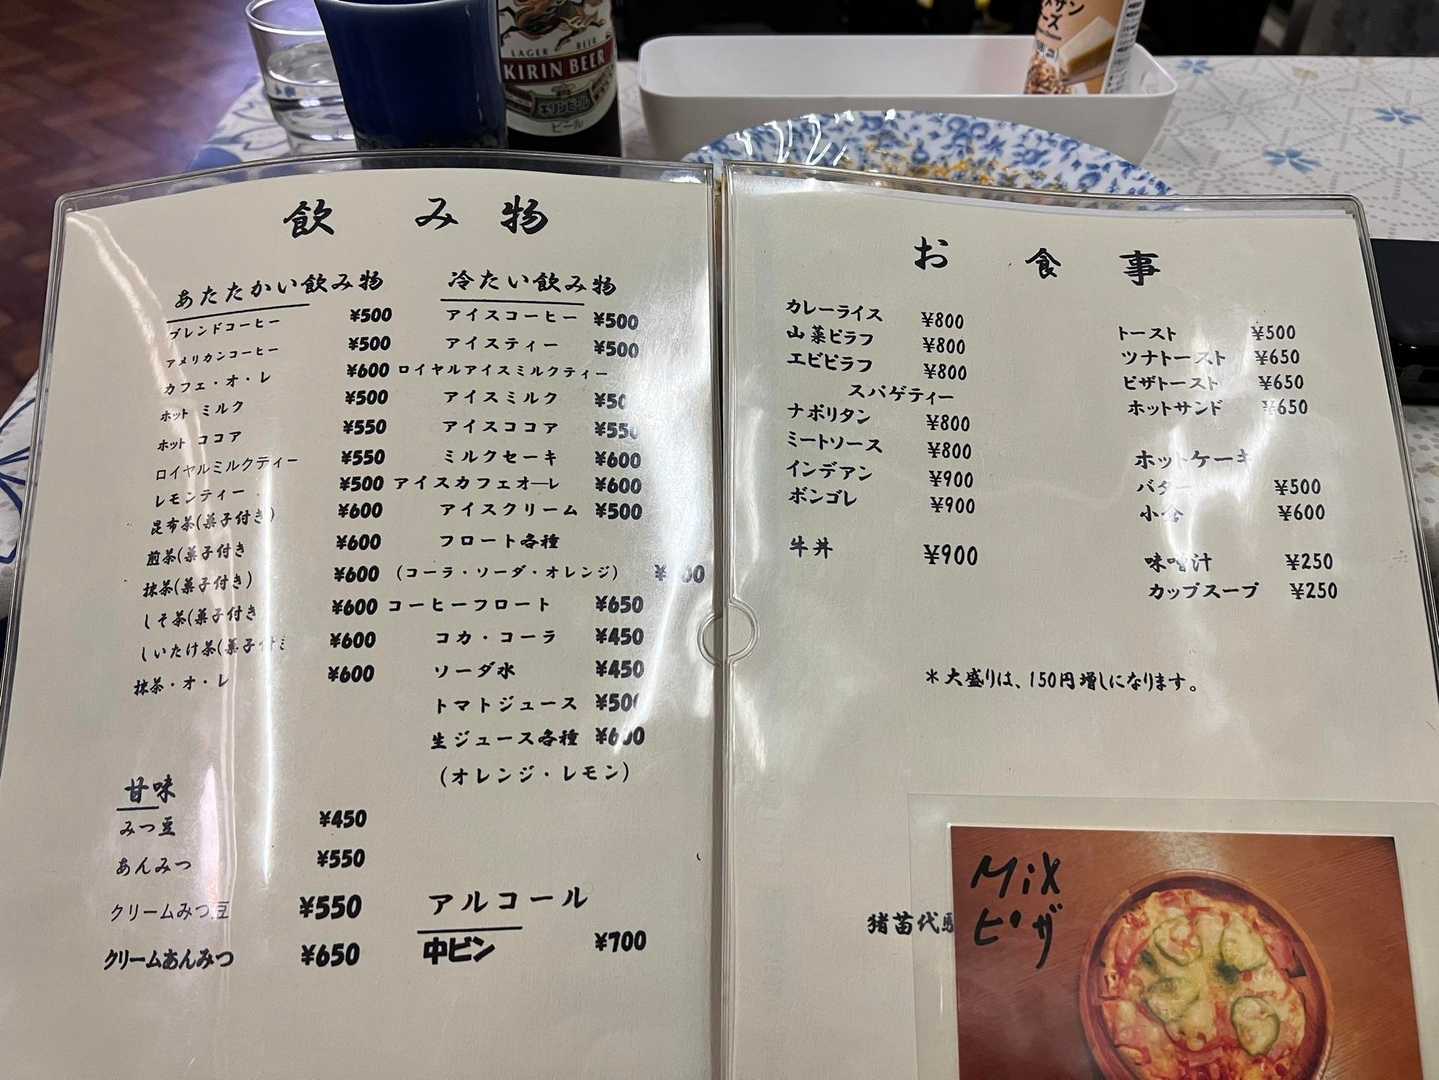 LAGER BEER
KIRIN BEER
キリンビール
ビール
飲み物
あたたかい飲み物
ブレンドコーヒー ¥500
アメリカンコーヒー ¥500
カフェ・オ・レ ¥600
ホット ミルク ¥500
ホット ココア ¥550
ロイヤルミルクティー ¥550
レモンティー ¥500
昆布茶(菓子付き) ¥600
煎茶(菓子付き ¥600
抹茶(菓子付き) ¥600
しそ茶(菓子付き ¥600
しいたけ茶(菓子付き ¥600
抹茶・オ・レ ¥600
甘味
みつ豆 ¥450
あんみつ ¥550
クリームみつ豆 ¥550
クリームあんみつ ¥650
冷たい飲み物
アイスコーヒー ¥500
アイスティー ¥500
ロイヤルアイスミルクティー
アイスミルク ¥500
アイスココア ¥550
ミルクセーキ ¥600
アイスカフェオーレ ¥600
アイスクリーム ¥500
フロート各種
(コーラ・ソーダ・オレンジ)
コーヒーフロート ¥650
コカ・コーラ ¥450
ソーダ水 ¥450
トマトジュース ¥500
生ジュース各種 ¥600
(オレンジ・レモン)
アルコール
中ビン ¥700
お食事
カレーライス ¥800
山菜ピラフ ¥800
エビピラフ ¥800
スパゲティー
ナポリタン ¥800
ミートソース ¥800
インデアン ¥900
ボンゴレ ¥900
牛丼 ¥900
トースト ¥500
ツナトースト ¥650
ピザトースト ¥650
ホットサンド ¥650
ホットケーキ
バター ¥500
小倉 ¥600
味噌汁 ¥250
カップスープ ¥250
*大盛りは、150円増しになります。
猪苗代
Mix
ピザ